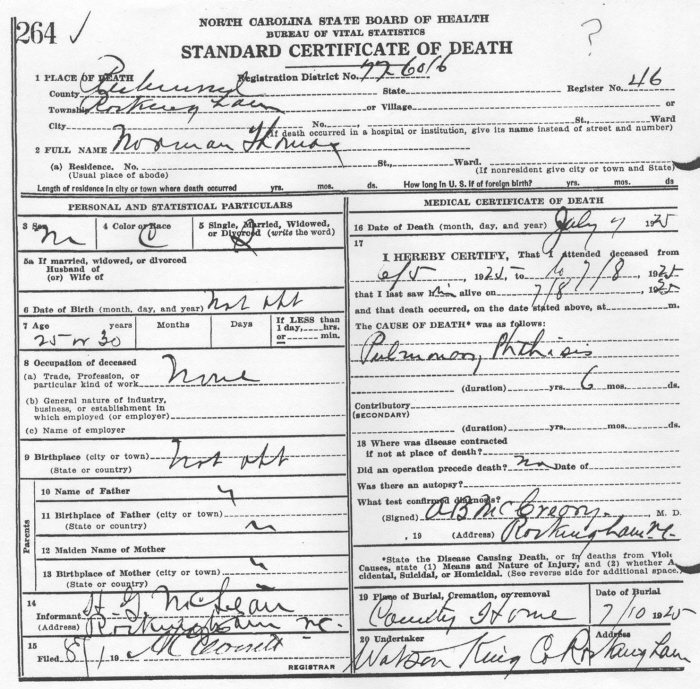 264 ✓
NORTH CAROLINA STATE BOARD OF HEALTH
BUREAU OF VITAL STATISTICS
STANDARD CERTIFICATE OF DEATH
?
1 PLACE OF DEATH Registration District No. 77-6016 Register No. 46
County Richmond State
Township Rockingham or Village or
City No. , St., Ward
(If death occurred in a hospital or institution, give its name instead of street and number)
2 FULL NAME Norman Thomas
(a) Residence. No. St., Ward.
(Usual place of abode) (If nonresident give city or town and State)
Length of residence in city or town where death occurred yrs. mos. ds. How long in U. S. if of foreign birth? yrs. mos. ds.
PERSONAL AND STATISTICAL PARTICULARS
3 Sex M
4 Color or Race C
5 Single, Married, Widowed, or Divorced (write the word)
5a If married, widowed, or divorced
Husband of
(or) Wife of
6 Date of Birth (month, day, and year) Not obt
7 Age years Months Days If LESS than
25 or 30 1 day, hrs.
or min.
8 Occupation of deceased
(a) Trade, Profession, or
particular kind of work None
(b) General nature of industry,
business, or establishment in
which employed (or employer)
(c) Name of employer
9 Birthplace (city or town) Not obt
(State or country)
Parents
10 Name of Father "
11 Birthplace of Father (city or town)
(State or country) "
12 Maiden Name of Mother
13 Birthplace of Mother (city or town) "
(State or country)
14
Informant McLean
(Address) Rockingham NC.
15
Filed 8/1 19
REGISTRAR
MEDICAL CERTIFICATE OF DEATH
16 Date of Death (month, day, and year) July 1925
17
I HEREBY CERTIFY, That I attended deceased from
6/5 1925 to 7/8, 1925
that I last saw him alive on 7/8, 1925
and that death occurred, on the date stated above, at m.
The CAUSE OF DEATH* was as follows:
Pulmonary Phthisis
(duration) yrs. 6 mos. ds.
Contributory
(SECONDARY)
(duration) yrs. mos. ds.
18 Where was disease contracted
if not at place of death?
Did an operation precede death? no Date of
Was there an autopsy?
What test confirmed diagnosis?
(Signed) A B McCreary, M. D.
, 19 (Address) Rockingham N.C.
*State the Disease Causing Death, or in deaths from Viole
Causes, state (1) Means and Nature of Injury, and (2) whether A
cidental, Suicidal, or Homicidal. (See reverse side for additional space.
19 Place of Burial, Cremation, or removal Date of Burial
County Home 7/10 1925
20 Undertaker Address
Watson King Co Rockingham